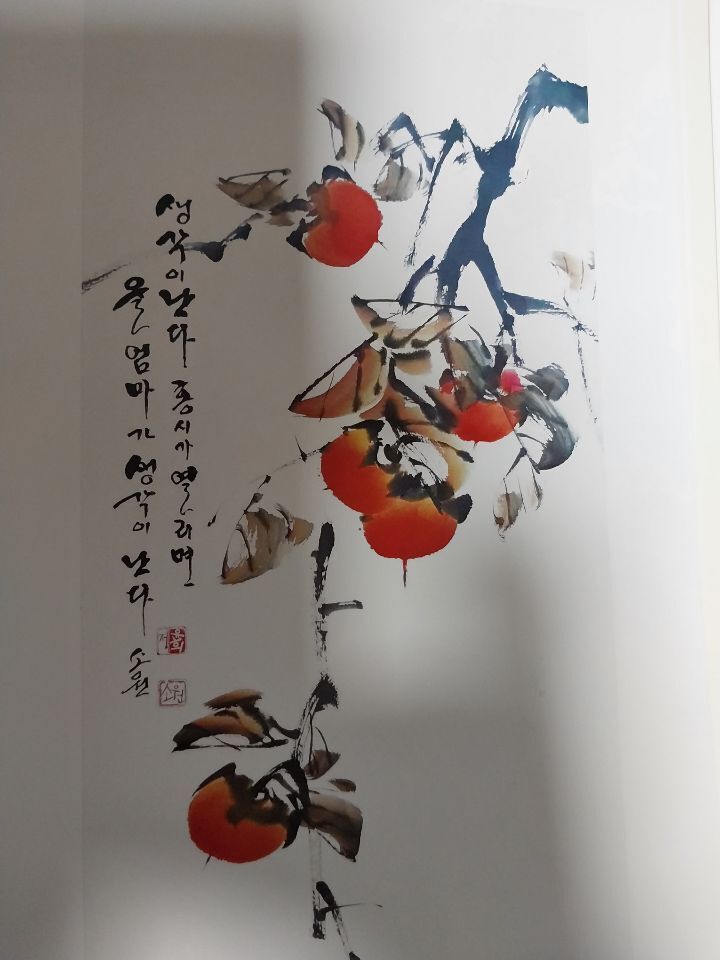 생각이난다 홍시가 열리면
울엄마가 생각이 난다 소원
소원